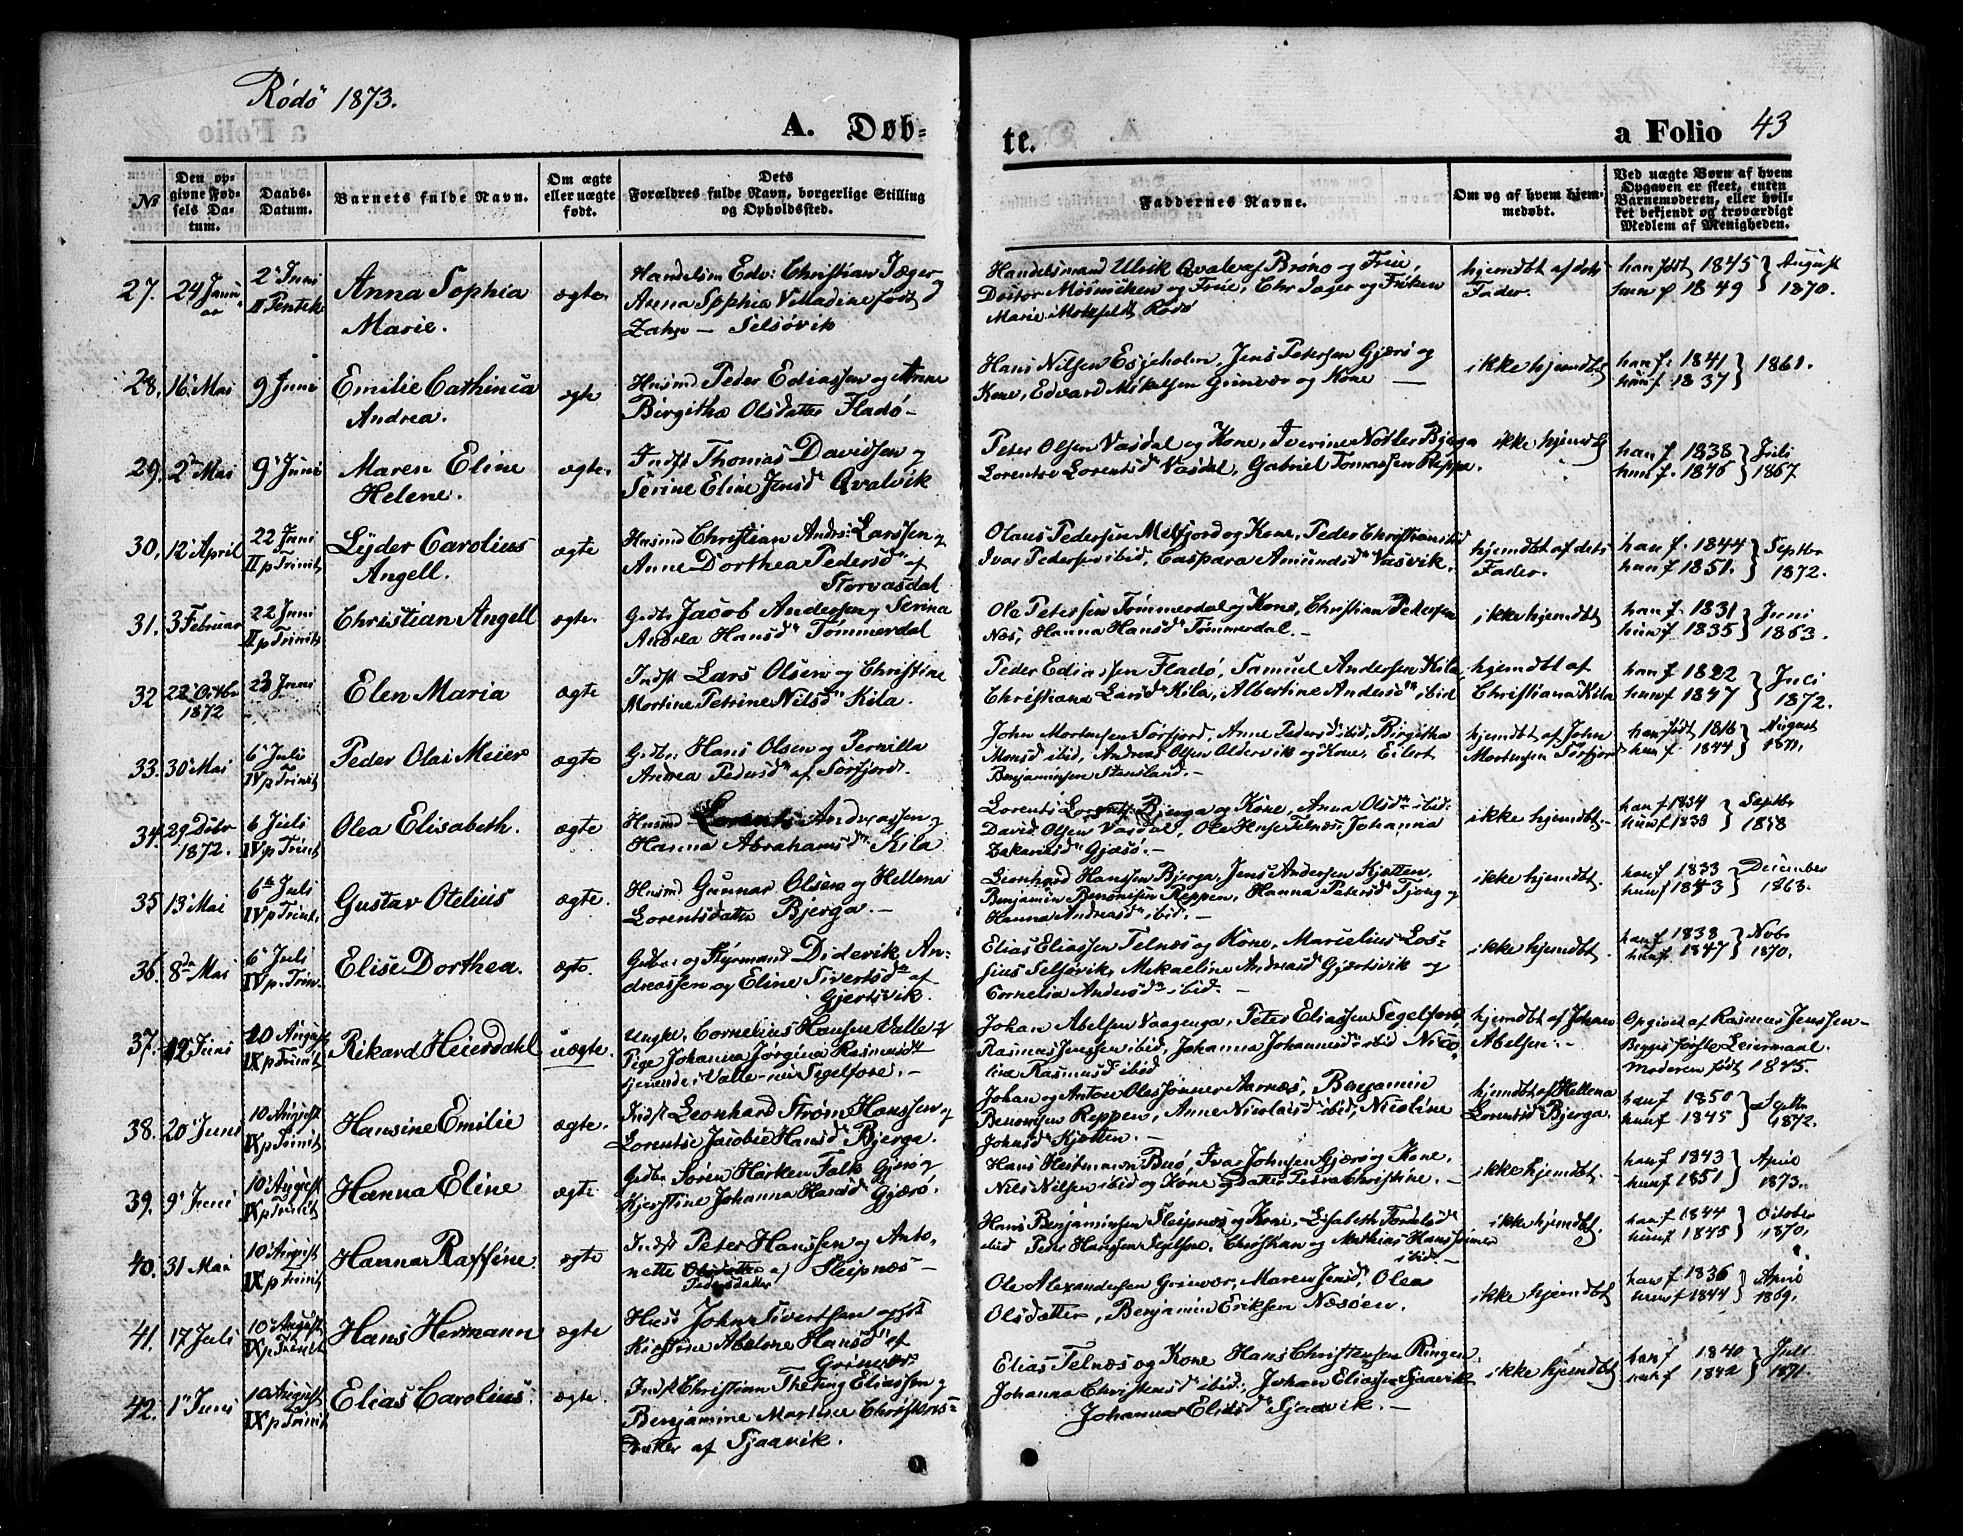 Rödö 1873.
A. Døb-
te.
a Folio 43
№
Den op-
givne Fød-
sels Da-
tum.
Daabs-
Datum.
Barnets fulde Navn.
Om ægte
eller uægte
født.
Dets
Forældres fulde Navn, borgerlige Stilling
og Opholdssted.
Faddernes Navne.
Om og af hvem hjem-
medøbt.
Ved uægte Børn af hvem
Opgaven er skeet, enten
Barnemoderen, eller hvil-
ket bekjendt og troværdigt
Medlem af Menigheden.
27. 24 Janu-
ar
2 Juni
II Pentek
Anna Sophia
Marie.
ægte.
Handelsm Edv: Christian Jæger
Anna Sophia Villadine født
Zahn — Selsövik
Handelsmand Ulrik Qvale af Brönö og Frue,
Doktor og Frue, Chr Jæger og Fröken
Marie Motzfeldt Rödö
hjemdbt af dets
Fader.
han født 1845
hun f 1849
August
1870.
28. 16 Mai
9 Juni
Emilie Cathinca
Andrea.
ægte
Husmd Peder Ediassen og Anne
Birgitha Olsdatter Fladö-
Hans Nilsen Esjeholm, Jens Petersen Gjærö og
Kone, Edvard Mikelsen Grinvær og Kone —
ikke hjemdbt
han f. 1841
hun f 1837
1861.
29. 2 Mai
9 Juni
Maren Eline
Helene.
ægte.
Indst Thomas Davidsen og
Serine Eline Jensd Qvalvik
Peter Olsen Vasdal og Kone, Iverine Bjerga
Lorentse Lorentsd Vasdal, Gabriel Tomassen Reppa.
ikke hjemdbt
han f 1838
hun f. 1845
Juli
1867
30. 12 April
22 Juni
II p Trinit
Lyder Carolius
Angell.
ægte
Husmd Christian Andr: Larssen og
Anne Dorthea Pedersd af
Storvasdal
Olaus Pedersen Melfjord og Kone, Peder
Ivar Pedersen ibid, Caspara Amundsd Vasvik.
hjemdbt af dets
Fader.
han f. 1844
hun f 1851.
Septbr
1872.
31. 3 Februar
22 Juni
II p Trinit
Christian Angell
ægte.
Gdbr Jacob Andersen og Serina
Andrea Hansd Tömmerdal
Ole Petersen Tömmerdal og Kone, Christian Pedersen
Nes, Hanna Hansd Tömmerdal.—
ikke hjemdbt
han f. 1831
hun f 1835
Juni
1863.
32 22 Octbr
1872
23 Juni
Elen Maria
ægte
Indst Lars Olsen og Christine
Martine Petrine Nilsd Kila.
Peder Ediassen Fladö, Samuel Andersen Kila,
Christiana Larsd Kila, Albertine Andersd ibid
hjemdbt af
Christiana Kila
han f 1822
hun f 1847
Juli
1872.
33. 30 Mai
6 Juli
IV p Trinit
Peder Olai Meier
ægte
Gdbr. Hans Olsen og Pernilla
Andrea Pedersd af Sörfjord.
John Mortensen Sörfjord, Anne Pedersd ibid, Birgitha
Monsd ibid, Andreas Olsen Oldervik og Kone, Eilert
Benjaminsen Stensland.—
hjemdbt af John
Mortensen Sörfjord
han født 1816
hun f. 1844
August
1871.
34. 29 Debr
1872.
6 Juli
IV p Trinit
Olea Elisabeth.
ægte
Husmd Lorents Andreassen og
Hanna Abrahamsd Kila
Lorents Lorents Bjerga og Kone, Anna Olsd ibid.
David Olsen Vasdal, Ole Telnæs, Johanna
Zakariasd Gjæsö.—
ikke hjemdbt.
han f 1834
hun f 1833
Septbr
1858
35 13 Mai
6 Juli
IV p Trinit.
Gustav Otelius
ægte.
Husmd Gunnar Olsen og Hellena
Lorentsdatter Bjerga.—
Leonhard Hanssen Bjerga, Jens Andersen Kjætten,
Benjamin Benonisen Reppen, Hanna Petersd Tjong og
Hanna Andreasd ibid.—
ikke hjemdbt.
han f 1833
hun f 1843
December
1863.
36. 8de Mai
6 Juli
IV p. Trin.
Elise Dorthea.
ægte.
Gdbr og Styrmand Diderik An-
dreassen og Eline Sivertsd af
Gjersvik.
Elias Eliassen Telnæs og Kone, Marselius Los-
sius Selsövik, Mikaeline Andreasd Gjærsvik og
Cornelia Andersd ibid.—
ikke hjemdbt.
han f 1838
hun f 1847
Novbr
1870.
37. 12 Juni
10 August
IX p Trinit
Rikard Heierdahl
uægte.
Ungkl. Cornelius Hansen Valle og
Pige Johanna Jörgina Rasmusdt
tjenende i Valle Segelfore.—
Johan Abelsen Vaagenga, Peter Eliassen Segelfore,
Rasmus Jenssen ibid, Johanna Johannesd ibid Nico-
line Rasmusd ibid
hjemdbt af Johan
Abelsen.—
Opgivet af Rasmus Jenssen—
Begges første Leiermaal.
Moderen født 1845.
38. 20 Juni
10 August
IX p Trinit
Hansine Emilie
ægte.
Indst Leonhard Ström Hanssen og
Lorentse Jacobie Hansd Bjerga.
Johan og Anton Olessönner Aarnæs, Benjamin
Benonisen Reppen, Anne Nicolaisd ibid, Nicoline
Johnsd Kjætten.—
hjemdbt af Hellena
Lorentsd Bjerga.
han f. 1850
hun f. 1845
Septbr
1872.
39. 9 Juni
10 August
IX p Trinit
Hanna Eline
ægte
Gdbr Sören Falk Gjerö og
Kjerstine Johanna Hansd Gjærö.
Hans Heitmann Buö, Ivar Johnsen Gjærö og Kone,
Nils Nilsen ibid og Kone og Datter Petra Christine.—
ikke hjemdbt.
han f 1843
hun f 1851
April
1873.
40. 31 Mai
10 August
IX p Trinit
Hanna Raffine
ægte
Indst Peter Hanssen og Anto-
nette Olsdatter af Sleipnæs—
Pedersdatter
Hans Benjaminsen Sleipnæs og Kone, Lisabeth
ibid Peder Hanssen Segelfore, Christian og Mathias Hanssönner
ibid.—
ikke hjemdbt.
han f 1844
hun f 1845
October
1870.
41. 17 Juli
10 August
IX p Trinit
Hans Hermann
ægte
Husm John Sivertsen og
Kirstine Abelone Hansd af
Grinvær
Ole Alexandersen Grinvær, Maren Jensd, Olea
Olsdatter, Benjamin Eriksen Næsöen.
ikke hjemdbt
han f 1836
hun f 1844
April
1869.
42. 1 Juni
10 August
IX p Trinit
Elias Carolius.
ægte.
Indst Christian Theting Eliassen og
Benjamine Martine Christens-
datter af Sjaavik.
Elias Telnæs og Kone Hans Christensen Ringen
Johanna Christensd ibid, Johan Eliassen Sjaavik
Johanna Eliasd Sjaavik.—
ikke hjemdbt
han f 1840
hun f 1842
Juli
1871.